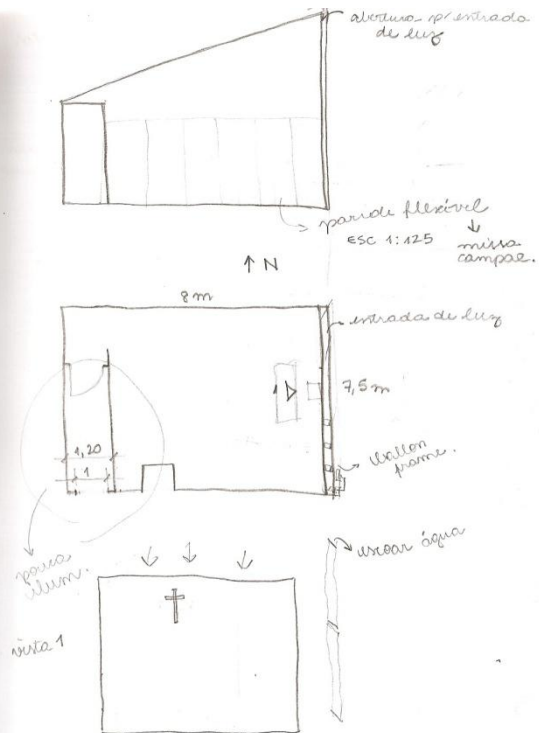 abertura p/ entrada
de luz
parede flexível
ESC 1:125
missa
campal.
↑ N
8 m
entrada de luz
7,5 m
1
1,20
1
ballon
frame.
pouca
ilum.
escoar água
vista 1